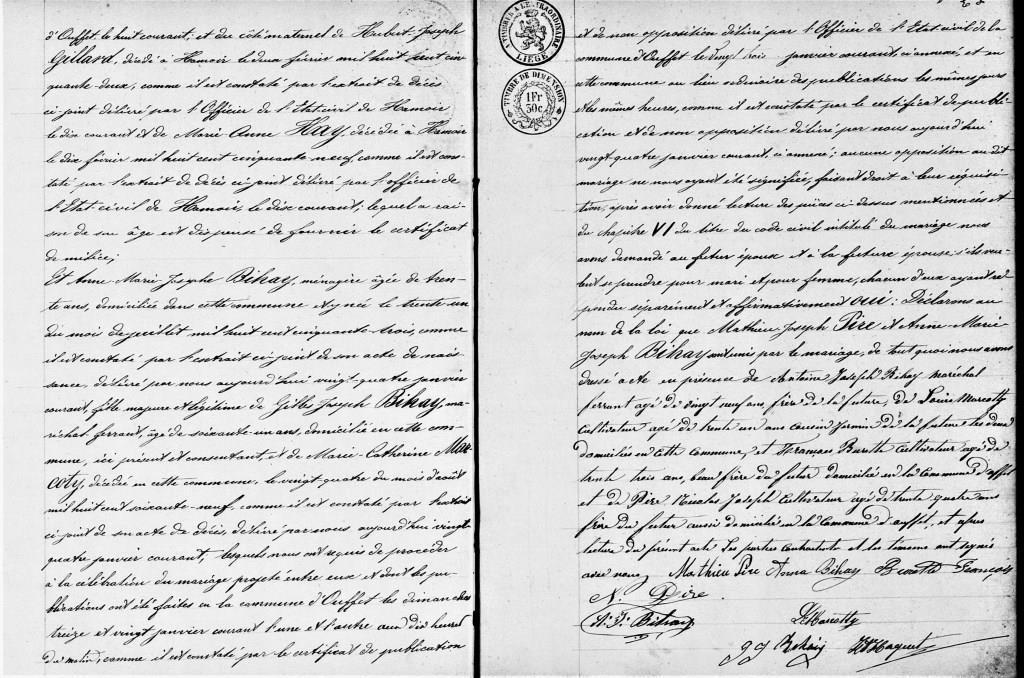 d'Ouffet, le huit courant, et du côté maternel de Hubert Joseph
Gillard, décédé à Hamoir le deux février mil huit cent cin
quante deux, comme il est constaté par l'extrait de décès
ci joint délivré par l'Officier de l'Etat civil de Hamoir
le dix courant et de Marie Anne Hay, décédée à Hamoir
le dix février mil huit cent cinquante neuf, comme il est cons
taté par l'extrait de décès ci-joint délivré par l'officier de
l'Etat-civil de Hamoir, le dix courant; lequel a rai-
son de son âge est dispensé de fournir le certificat
de milice;
Et Anne Marie Josephe Bihay, ménagère âgée de tren-
te ans, domiciliée dans cette commune et y née le trente-un
du mois de juillet mil huit cent cinquante-trois, comme
il est constaté par l'extrait ci-joint de son acte de nais
sance, délivré par nous aujourd'hui vingt-quatre janvier
courant, fille majeure et légitime de Gilles Joseph Bihay, ma-
réchal ferrant, âgé de soixante-un ans, domicilié en cette com-
mune, ici présent et consentant, et de Marie-Catherine Mar
coty, décédée en cette commune, le vingt-quatre du mois d'août
mil huit cent soixante-neuf, comme il est constaté par l'extrait
ci-joint de son acte de décès, délivré par nous aujourd'hui vingt-
quatre janvier courant; lesquels nous ont requis de procéder
à la célébration du mariage projeté entre eux et dont les pu-
blications ont été faites en la commune d'Ouffet les dimanches
treize et vingt janvier courant l'une et l'autre aux dix heures
du matin, comme il est constaté par le certificat de publication
TIMBRE A L'EXTRAORDINAIRE
LIEGE
TIMBRE DE DIMENSION
1 Fr
30 c.
et de non opposition délivré par l'Officier de l'Etat civil de la
commune d'Ouffet le vingt trois janvier courant, ci annexé, et en
cette commune au lieu ordinaire des publications les mêmes jours
et les mêmes heures, comme il est constaté par le certificat de publi
cation et de non opposition délivré par nous aujourd'hui
vingt-quatre janvier courant, ci annexé; aucune opposition au dit
mariage ne nous ayant été signifiée, faisant droit à leur réquisi
tion, après avoir donné lecture des pièces ci-dessus mentionnées et
du chapitre VI du titre du code civil intitulé du mariage nous
avons demandé au futur époux et à la future épouse s'ils veu-
lent se prendre pour mari et pour femme, chacun d'eux ayant ré
pondu séparément et affirmativement OUI: Déclarons au
nom de la loi que Mathieu Joseph Pire et Anne-Marie
Joseph Bihay sont unis par le mariage, de tout quoi nous avons
dressé acte en présence de Antoine Joseph Bihay maréchal
ferrant agé de vingt neuf ans, frère de la future, de Louis Marcotty
Cultivateur agé de trente un ans cousin germain de la future les deux
domiciliés en cette Commune, et François Cultivateur agé de
trente trois ans, beau frère du futur domicilié en la Commune d'ouffet
et de Pire Nicolas Joseph Cultivateur agé de trente quatre ans
frère du futur aussi domicilié en la Commune d'ouffet, et après
lecture du présent acte les parties contractantes et les témoins ont signés
avec nous, Mathieu Pire Anna Bihay François
N. Pire.
A. J. Bihay L. Marcotty
G J Bihay